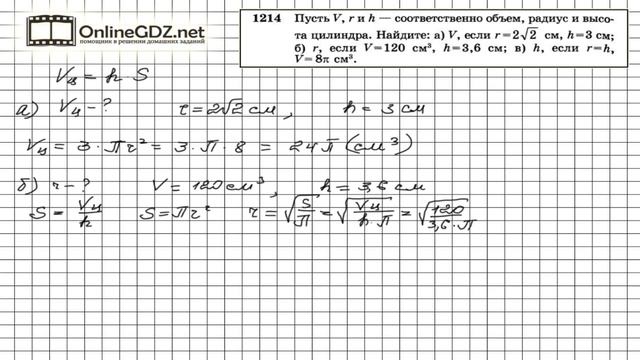 OnlineGDZ.net
помощник в решении домашних заданий
1214 Пусть V, r и h — соответственно объем, радиус и высо-
та цилиндра. Найдите: а) V, если r=2√2 см, h=3 см;
б) r, если V=120 см³, h=3,6 см; в) h, если r=h,
V=8π см³.
Vц = h S
а) Vц – ? r = 2√2 см, h = 3 см
Vц = 3 · Пr² = 3 · П · 8 = 24П (см³)
б) r – ? V = 120 см³, h = 3,6 см
S = Vц/h S = Пr² r = √(S/П) = √(Vц/(h·П)) = √(120/(3,6·П))